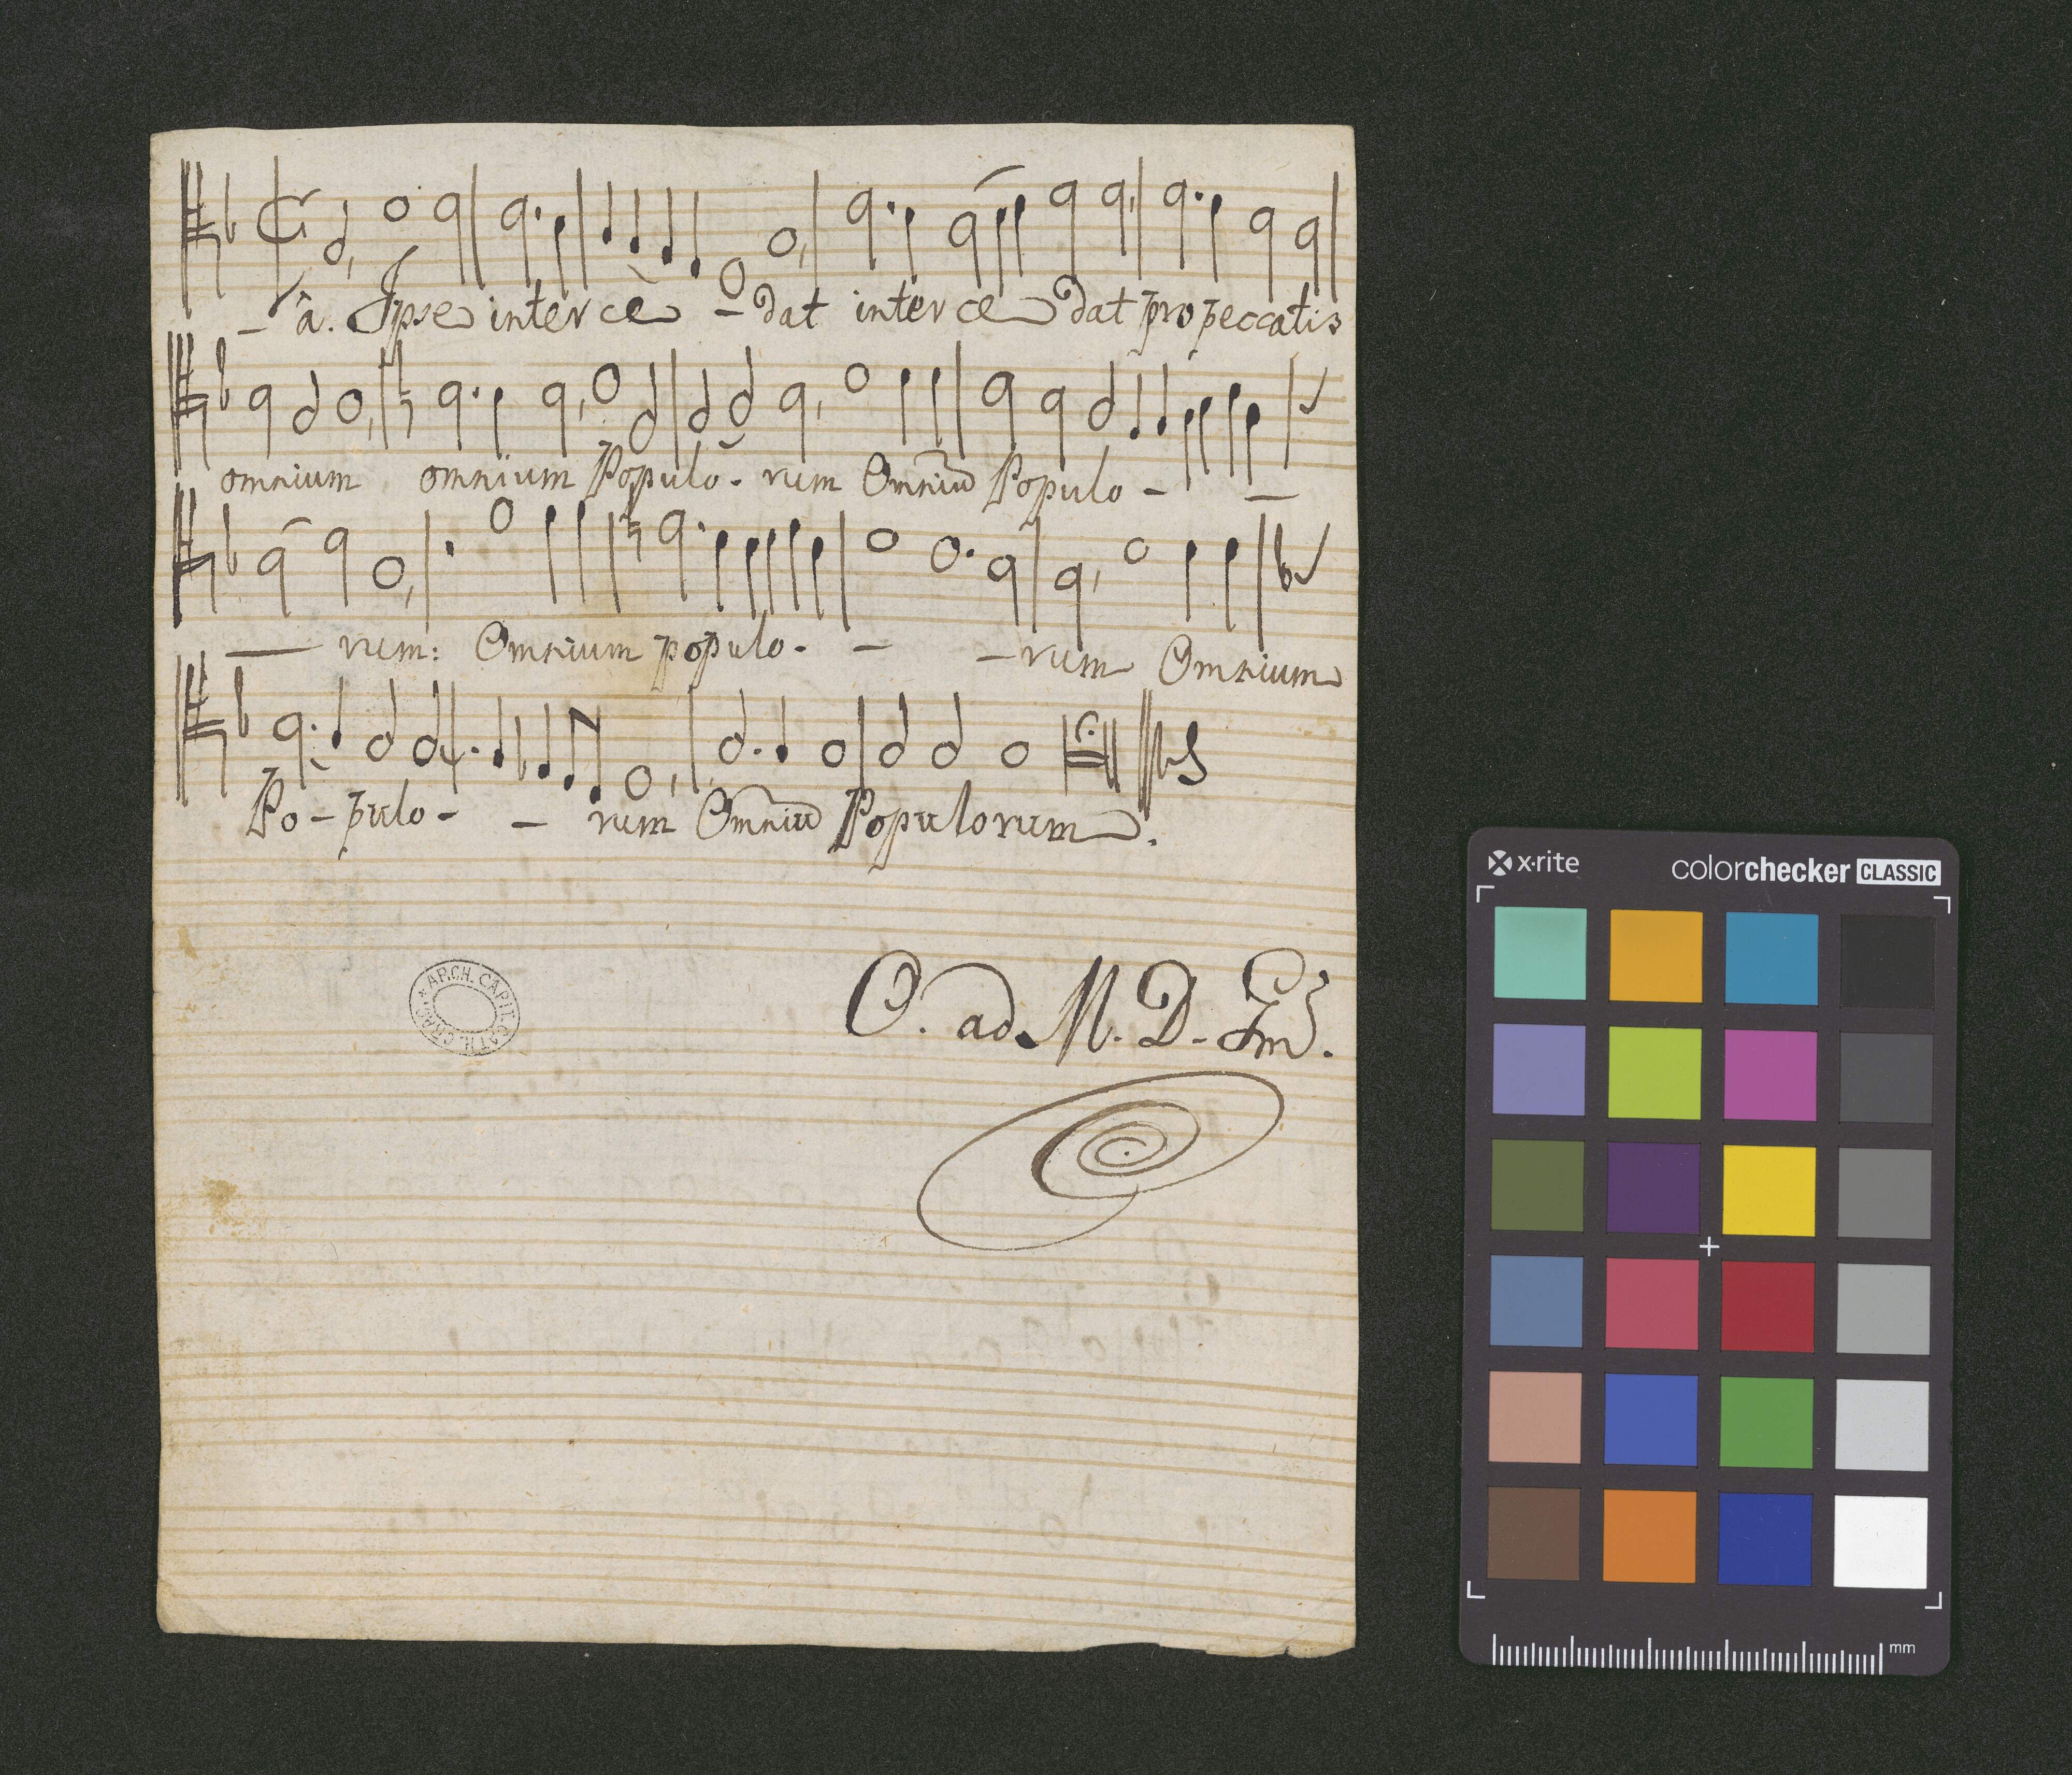 - â. Ipse intercè - dat interce dat pro peccatis
omnium omnium Populo - rum Omniū Populo - -
- rum: Omnium populo - - - rum Omnium
Po - pulo - - rum Omniū Populorum.
ARCH. CAPIT. CATH. CRAC.
O. ad M. D.
x·rite colorchecker CLASSIC
mm